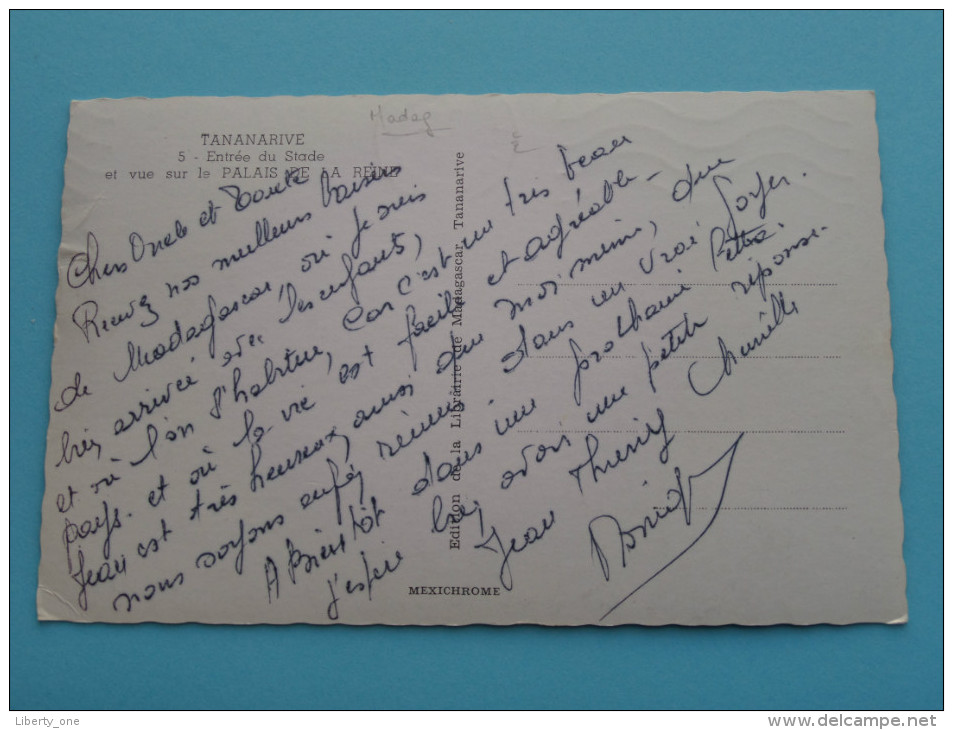 Madag
TANANARIVE
5 - Entrée du Stade
et vue sur le PALAIS DE LA REINE
Chers Oncle et Tante
Recevez nos meilleurs baisers
de Madagascar, où je suis
bien arrivée avec les enfants,
et où l'on s'habitue, car c'est un très beau
pays. et où la vie est facile et agréable.
Jean est très heureux, ainsi que moi même, que
nous soyons enfin réunis dans un vrai foyer.
A Bientôt dans une prochaine lettre.
j'espère bien avoir une petite réponse.
Jean Thierry Chantille
Edition de la Librairie de Madagascar, Tananarive
MEXICHROME
Liberty_one
www.delcampe.net